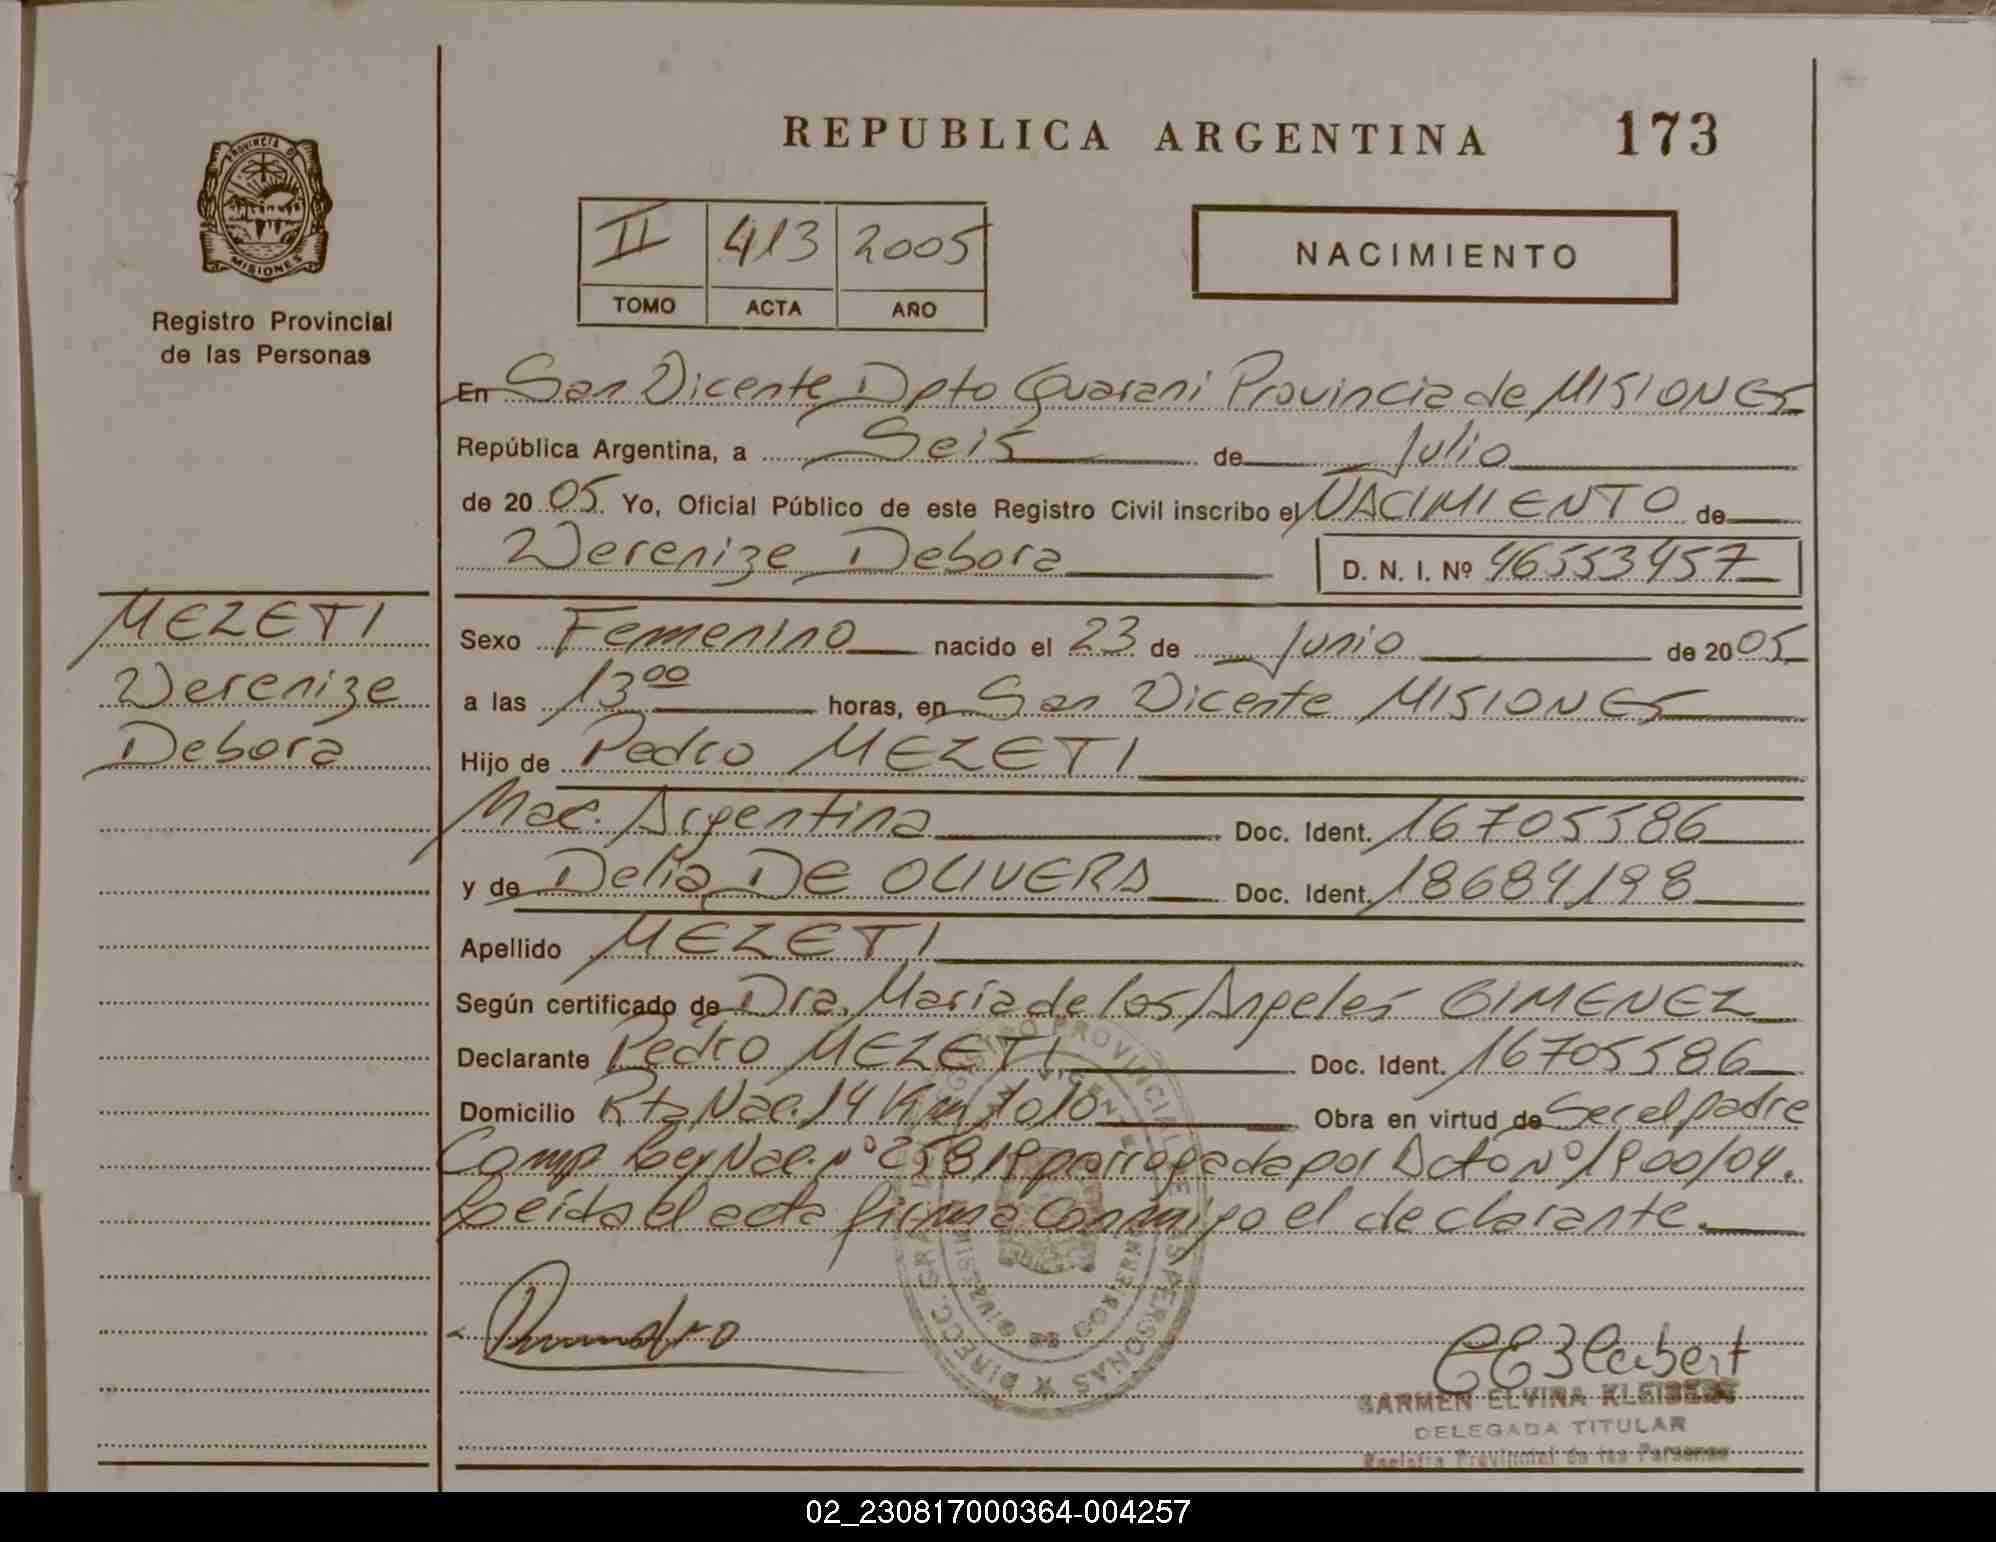 REPUBLICA ARGENTINA 173
PROVINCIA DE
MISIONES
Registro Provincial
de las Personas
II 413 2005
TOMO ACTA AÑO
NACIMIENTO
En San Vicente Dpto Guarani Provincia de MISIONES
República Argentina, a Seis de Julio
de 2005. Yo, Oficial Público de este Registro Civil inscribo el NACIMIENTO de
Werenize Debora D. N. I. Nº 46553457
MEZETI
Werenize
Debora
Sexo Femenino nacido el 23 de Junio de 2005
a las 13 00 horas, en San Vicente MISIONES
Hijo de Pedro MEZETI
Nac. Argentina Doc. Ident. 16705586
y de Delia DE OLIVERA Doc. Ident. 18684198
Apellido MEZETI
Según certificado de Dra. Maria de los Angeles GIMENEZ
Declarante Pedro MEZETI Doc. Ident. 16705586
Domicilio Rta Nac. 14 Km 1010 Obra en virtud de Ser el padre
Comp. Ley Nac. nº 25819 prorrogada por Dcto Nº 1900/04.
Leida el acta firma conmigo el declarante.
CARMEN ELVIRA KLEIBERT
DELEGADA TITULAR
Registro Provincial de las Personas
02_230817000364-004257